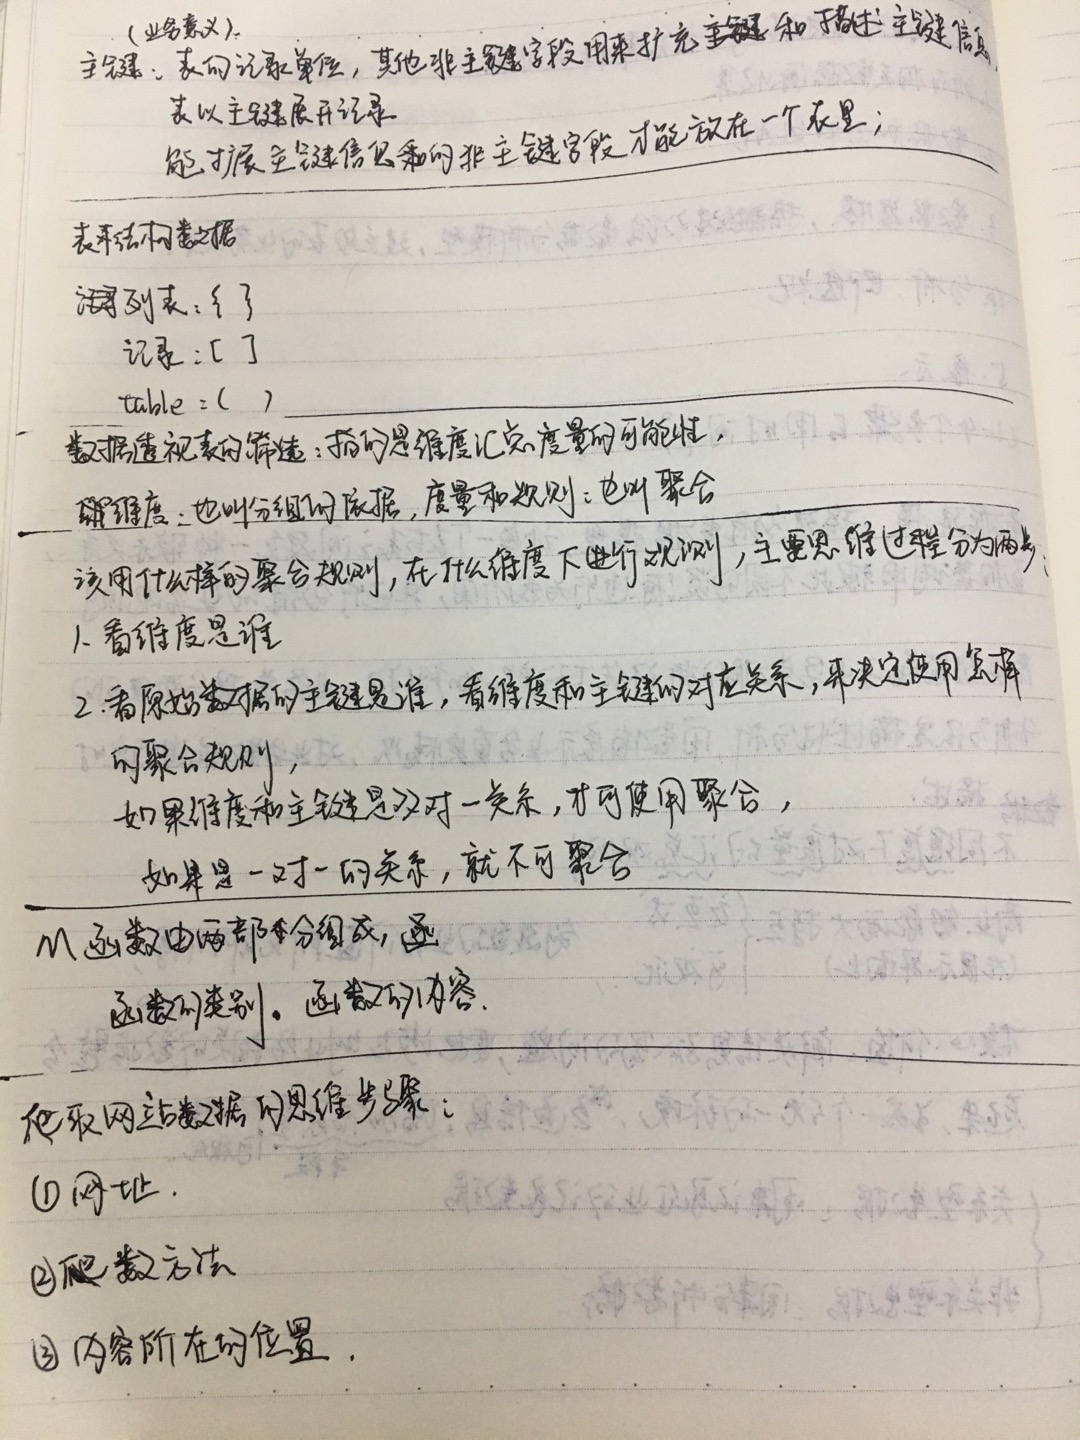 (业务意义).
主键：表的记录单位，其他非主键字段用来扩充主键和描述主键信息，
表以主键展开记录
能扩展主键信息的非主键字段才能放在一个表里；
表结构数据
列表：{ }
记录：[ ]
table：( )
数据透视表的筛选：指的是维度汇总度量的可能性，
维度：也叫分组的依据，度量和规则：也叫聚合
该用什么样的聚合规则，在什么维度下进行观测，主要思维过程分为两步：
1、看维度是谁
2、看原始数据的主键是谁，看维度和主键的对应关系，来决定使用怎样
的聚合规则，
如果维度和主键是对一关系，才可使用聚合，
如果是一对一的关系，就不可聚合
M函数由两部分组成，
函数的类别。函数的内容.
爬取网站数据的思维步骤：
①网址.
②爬数方法
③内容所在的位置.